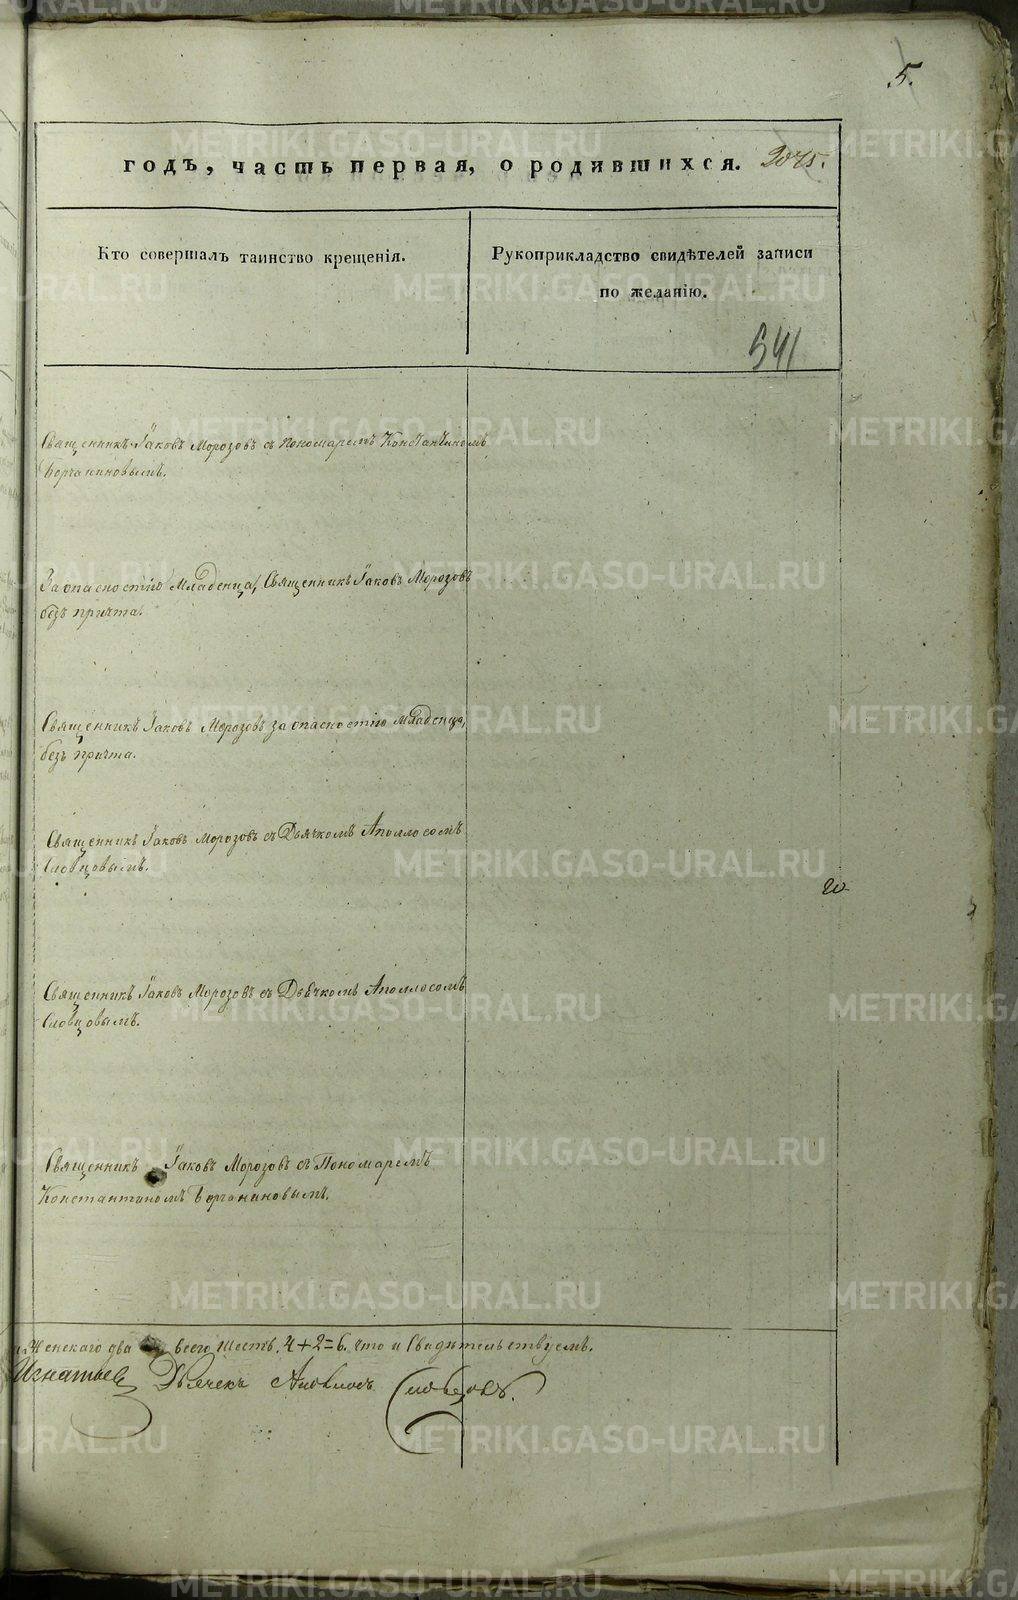 5.
годъ, часть первая, о родившихся. 2045.
Кто совершалъ таинство крещенія.
Рукоприкладство свидѣтелей записи
по желанію.
541
Священникъ Іаковъ Морозовъ съ пономаремъ Константиномъ
За опасностію Младенца, Священникъ Іаковъ Морозовъ
безъ причта.
Священникъ Іаковъ Морозовъ за опасностію младенца,
безъ причта.
Священникъ Іаковъ Морозовъ съ Дьячкомъ Аполлосомъ
Словцовымъ.
Священникъ Іаковъ Морозовъ съ Дьячкомъ Аполлосомъ
Словцовымъ.
Священникъ Іаковъ Морозовъ съ Пономаремъ
Константиномъ
Женскаго два всего шесть. 4+2=6. что и свидѣтельствуемъ.
Игнатьевъ Дьячекъ Аполлосъ Словцовъ.
METRIKI.GASO-URAL.RU